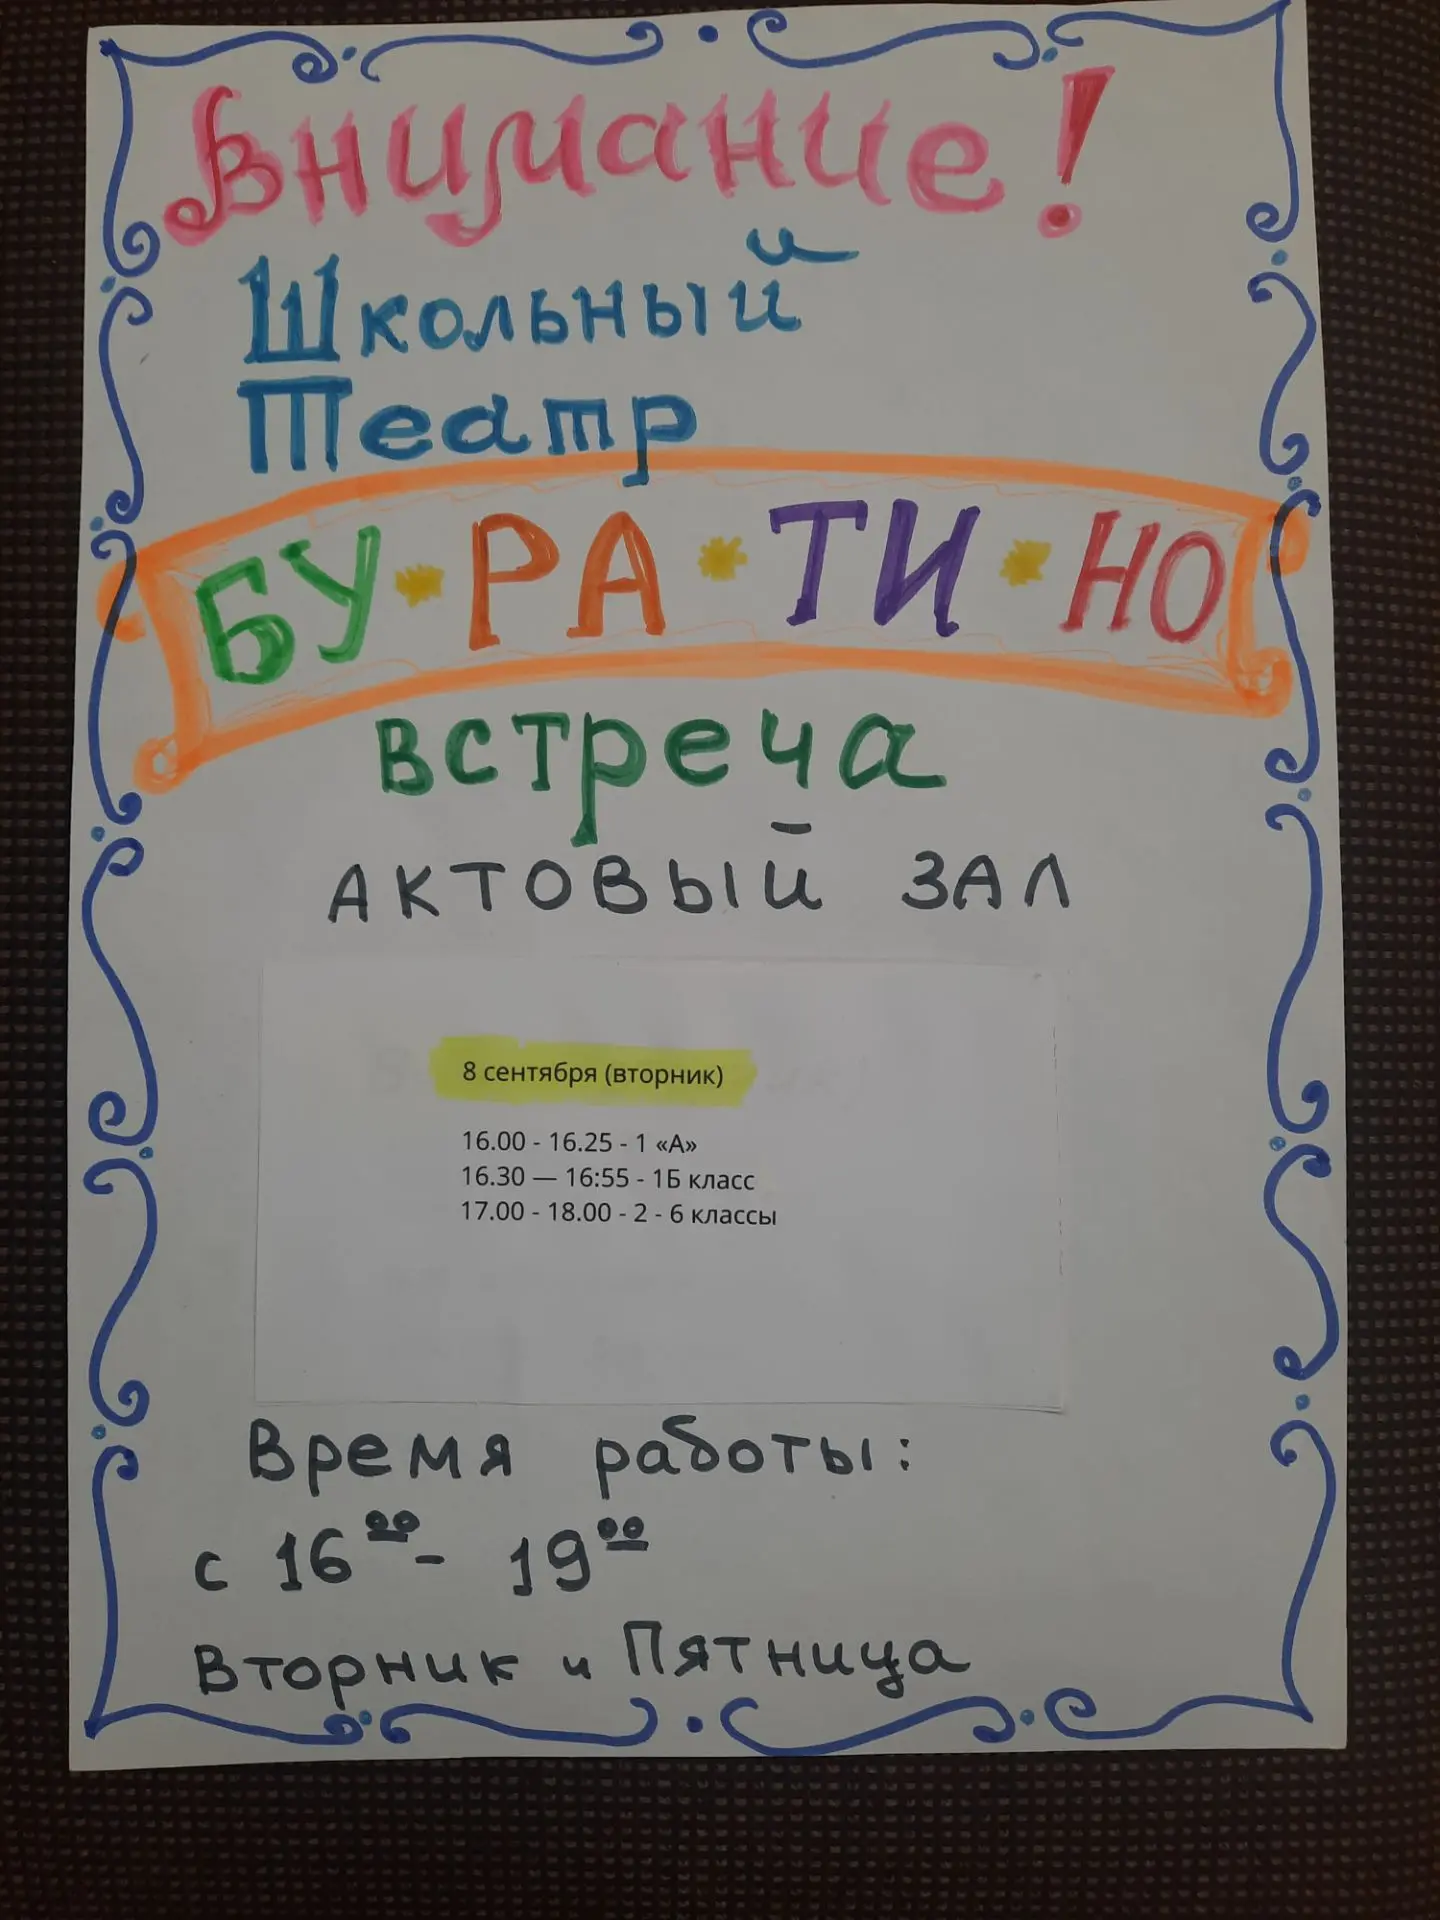 Внимание!
Школьный
Театр
БУ·РА·ТИ·НО
встреча
АКТОВЫЙ ЗАЛ
8 сентября (вторник)
16.00 - 16.25 - 1 «А»
16.30 — 16:55 - 1Б класс
17.00 - 18.00 - 2 - 6 классы
Время работы:
с 16⁰⁰- 19⁰⁰
Вторник и Пятница